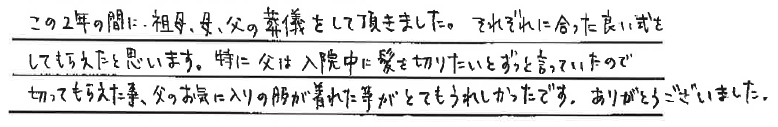 この2年の間に、祖母、母、父の葬儀をして頂きました。それぞれに合った良い式を
してもらえたと思います。特に父は入院中に髪を切りたいとずっと言っていたので
切ってもらえた事、父のお気に入りの服が着れた等がとてもうれしかったです。ありがとうございました。